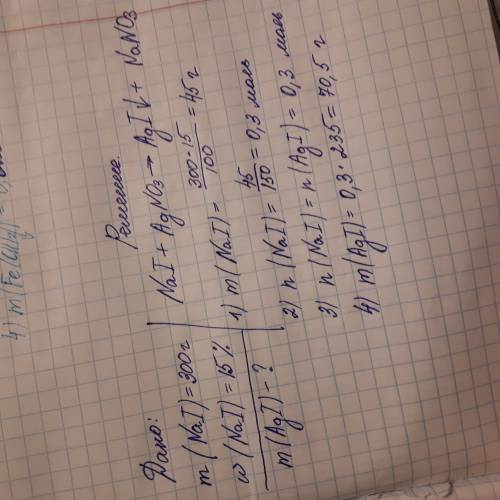 4) m(Fe(
Дано:
m(NaI)=300г
ω(NaI)=15%
m(AgI)-?
Решение.
NaI + AgNO₃ → AgI↓ + NaNO₃
1) m(NaI) = 300·15/100 = 45 г
2) n(NaI) = 45/150 = 0,3 моль
3) n(NaI) = n(AgI) = 0,3 моль
4) m(AgI) = 0,3·235 = 70,5 г